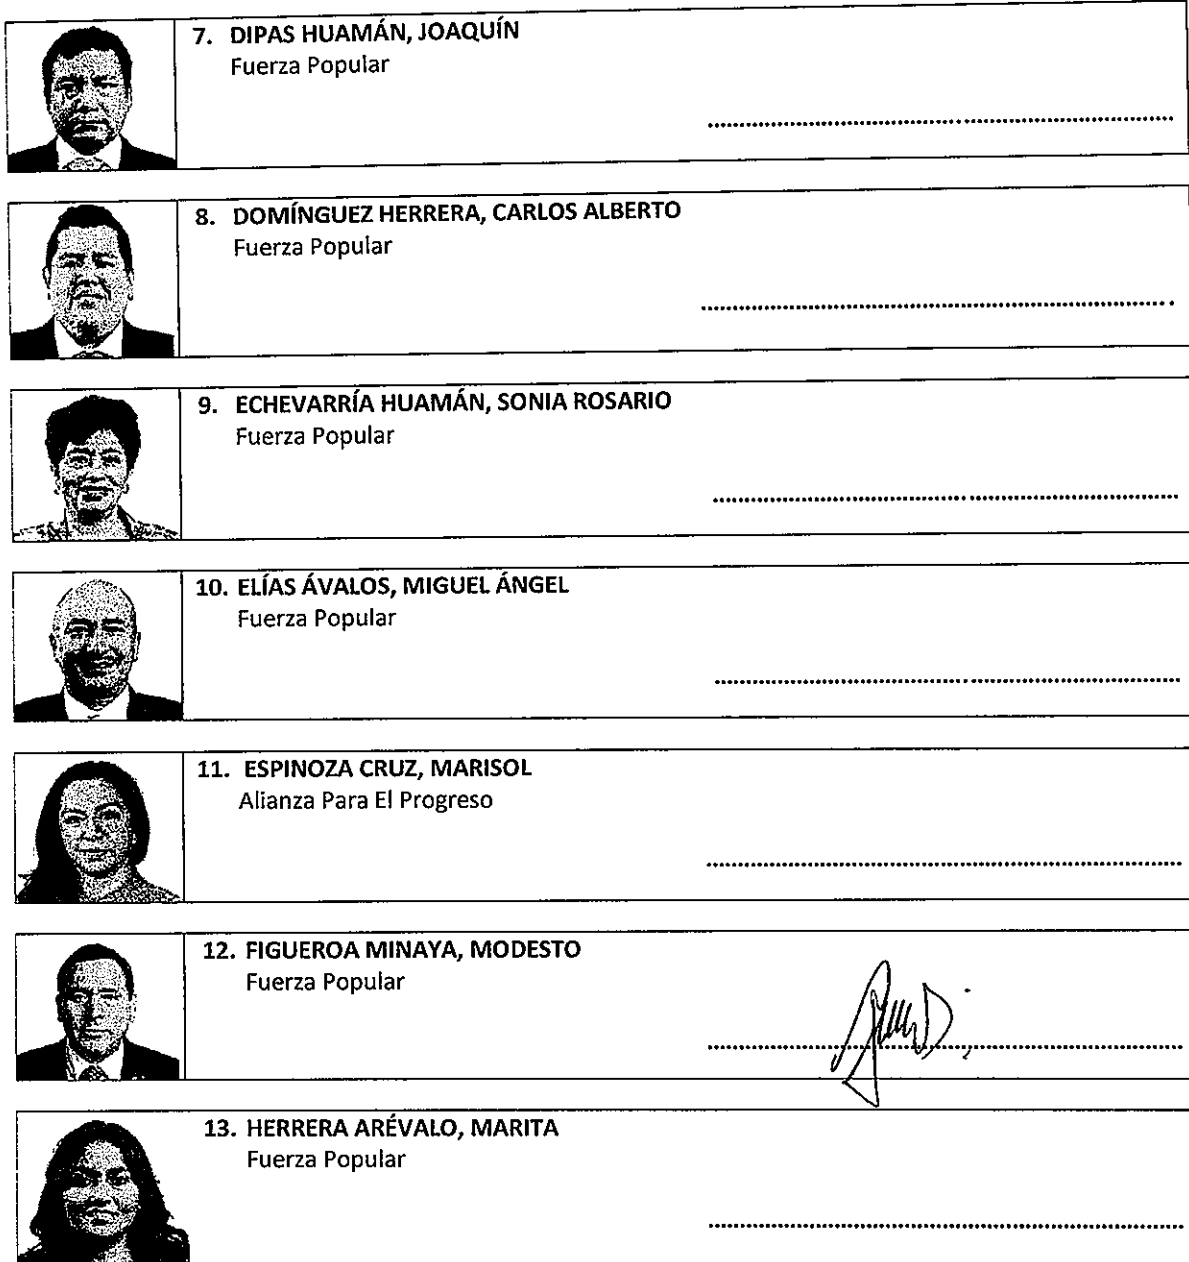 7. DIPAS HUAMÁN, JOAQUÍN
Fuerza Popular
8. DOMÍNGUEZ HERRERA, CARLOS ALBERTO
Fuerza Popular
9. ECHEVARRÍA HUAMÁN, SONIA ROSARIO
Fuerza Popular
10. ELÍAS ÁVALOS, MIGUEL ÁNGEL
Fuerza Popular
11. ESPINOZA CRUZ, MARISOL
Alianza Para El Progreso
12. FIGUEROA MINAYA, MODESTO
Fuerza Popular
13. HERRERA ARÉVALO, MARITA
Fuerza Popular